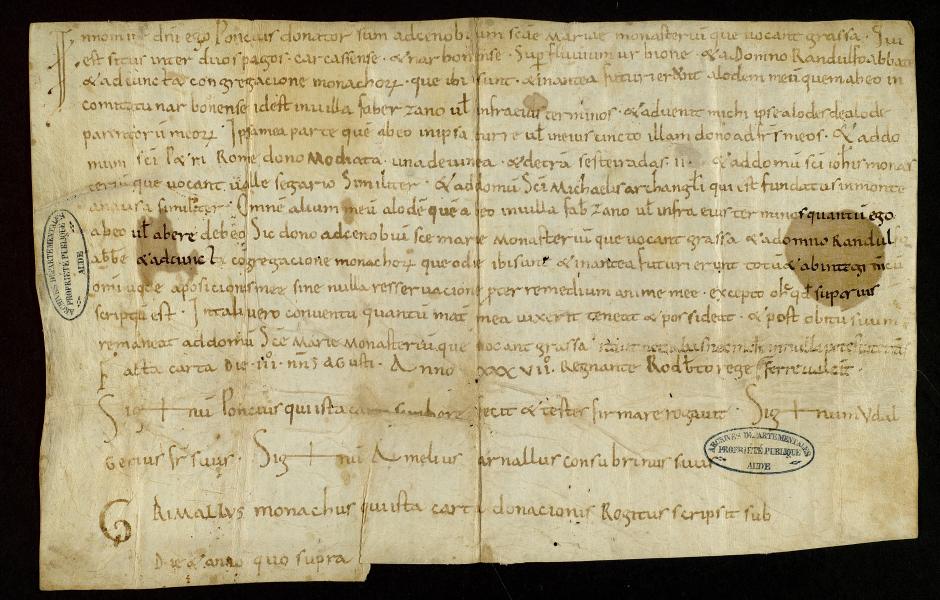 In nomine dni ego Poncius donator sum ad cenobium scae Mariae monasterii que vocant grassa. Qui
est situs inter duos pagos. carcassense. & narbonense. Sup fluvium urbione. & a Domno Randulfo abbate
& adiuncta congregacione monachorum. que ibi sunt. & in antea futuri erunt alodem meu quem abeo in
comitatu narbonense id est in villa faber zano vl infra eius terminos. & advenit michi ipse alodes de alode
parentoru meoru. Ipsa mea parte que abeo in ipsa turre vl in eius cincto illam dono ad frs meos. & ad do
mum sci Petri Rome dono Modiata. una de vinea. & de tra sesteiradas. II. & ad domu sci iohis monas
teriu que vocant valle segario Similiter. & ad domu Sci Michaelis archangli qui est fundatus in monte
similiter. Omne alium meu alode que abeo in villa fab zano vl infra eius terminos quantu ego
abeo vl abere debeo Sic dono ad cenobiu sce marie monasteriu que vocant grassa & a domno Randul
abbe & adiuncta cogregacione monachoru que odie ibi sunt & in antea futuri erunt totu & ab integru cu
omiuqe aposicionis mee sine nulla resservacione pter remedium anime mee. excepto oc qd superius
scriptu est. In tali vero conventu quantu mat mea vixerit teneat & possideat. & post obitu suum
remaneat ad domu Sce Marie Monasteriu que vocant grassa
Facta carta Die. III. nns Agusti. Anno XXXVII. Regnante Rodbto rege
Sig+nu Poncius qui ista carta fecit & testes firmare rogavit. Sig+num Udal
gerius fr suus. Sig+nu Amelius arnallus consubrinus suus
RiMallus monachus qui ista carta donacionis Rogitus scripsit sub
Die & anno quo supra
ARCHIVES DEPARTEMENTALES
PROPRIÉTÉ PUBLIQUE
AUDE
ARCHIVES DEPARTEMENTALES
PROPRIÉTÉ PUBLIQUE
AUDE